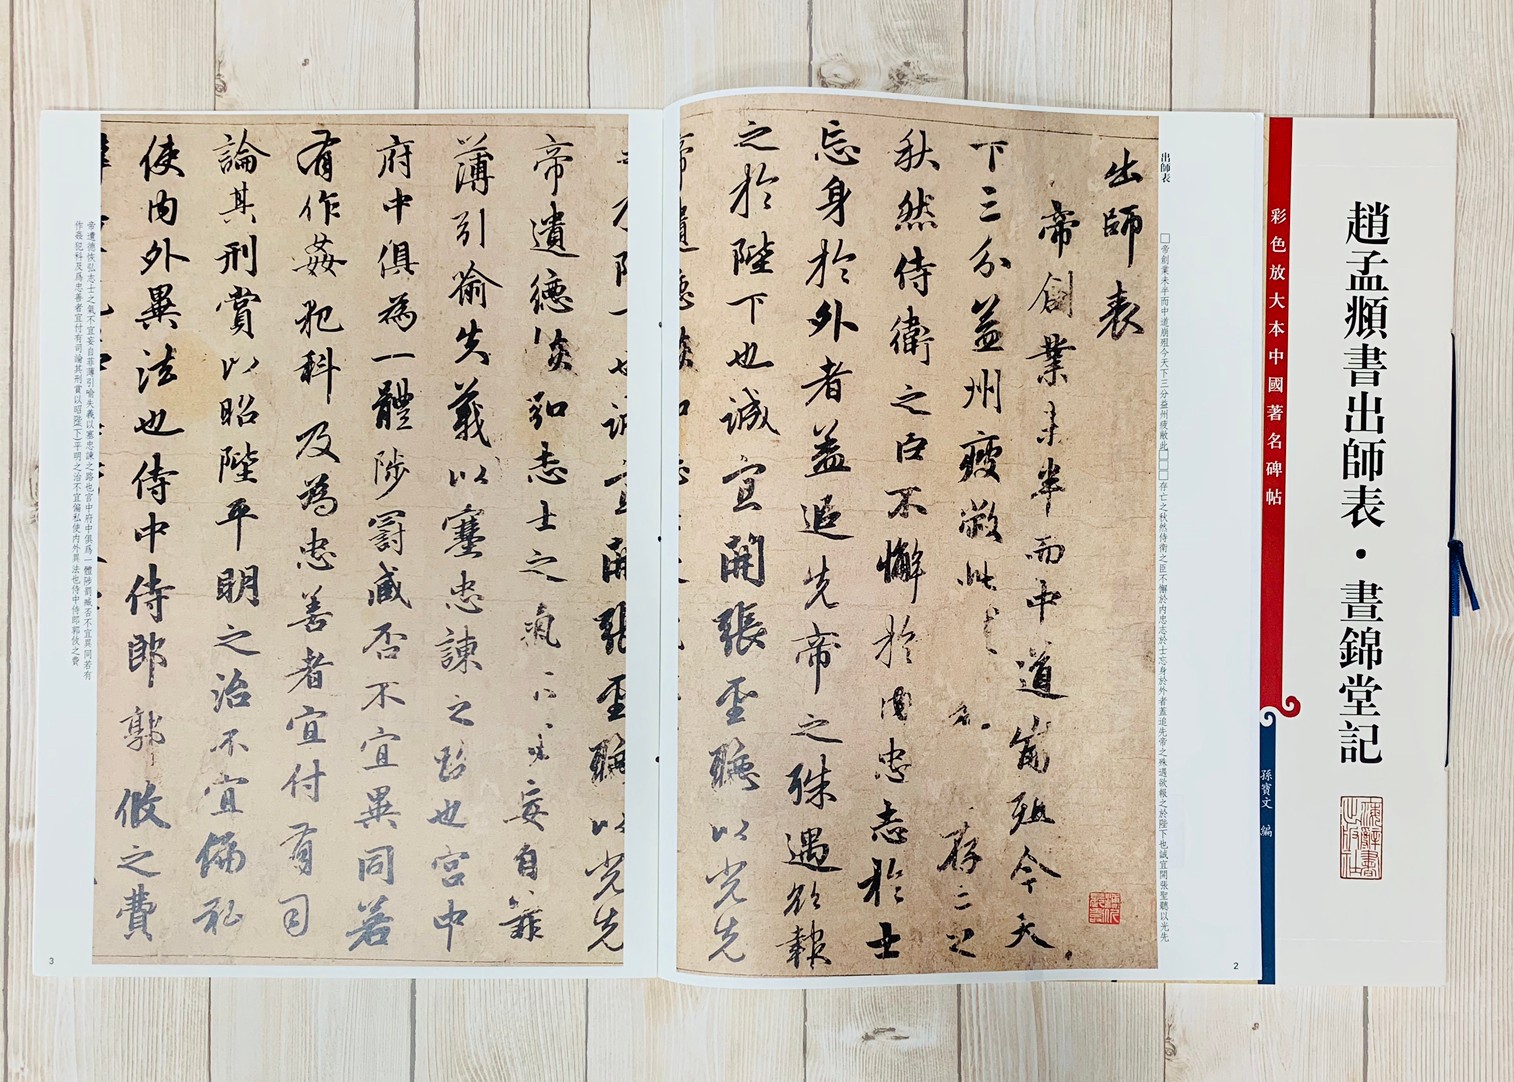 趙孟頫書出師表・晝錦堂記
海辭書出版社
彩色放大本中國著名碑帖
孫寶文 編
出師表
□帝創業未半而中道崩殂今天下三分益州疲敝此□□□存亡之秋然侍衛之臣不懈於內忠志於士忘身於外者蓋追先帝之殊遇欲報之於陛下也誠宜開張聖聽以光先
出師表
帝創業未半而中道崩殂今天
下三分益州疲敝此 存亡之
秋然侍衛之臣不懈於內忠志於士
忘身於外者蓋追先帝之殊遇欲報
之於陛下也誠宜開張聖聽以光先
2
帝遺德恢弘志士之氣不宜妄自菲
薄引喻失義以塞忠諫之路也宮中
府中俱為一體陟罰臧否不宜異同若
有作姦犯科及為忠善者宜付有司
論其刑賞以昭陛平明之治不宜偏私
使內外異法也侍中侍郎郭攸之費
帝遺德恢弘志士之氣不宜妄自菲薄引喻失義以塞忠諫之路也宮中府中俱爲一體陟罰臧否不宜異同若有
作姦犯科及爲忠善者宜付有司論其刑賞以昭陛(下)平明之治不宜偏私使內外異法也侍中侍郎郭攸之費
3